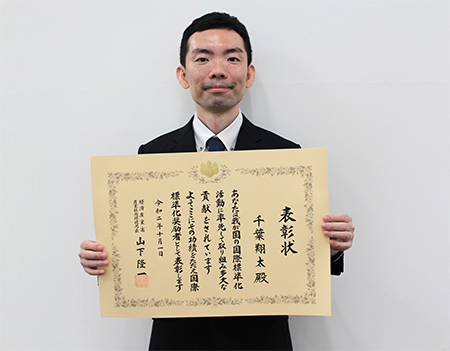 表彰状
千葉翔太殿
あなたは我が国の国際標準化
活動に率先して取り組み多大な
貢献をされています
よってここにその功績をたたえ国際
標準化奨励者として表彰します
令和二年十月一日
経済産業省
産業技術環境局長
山下隆一